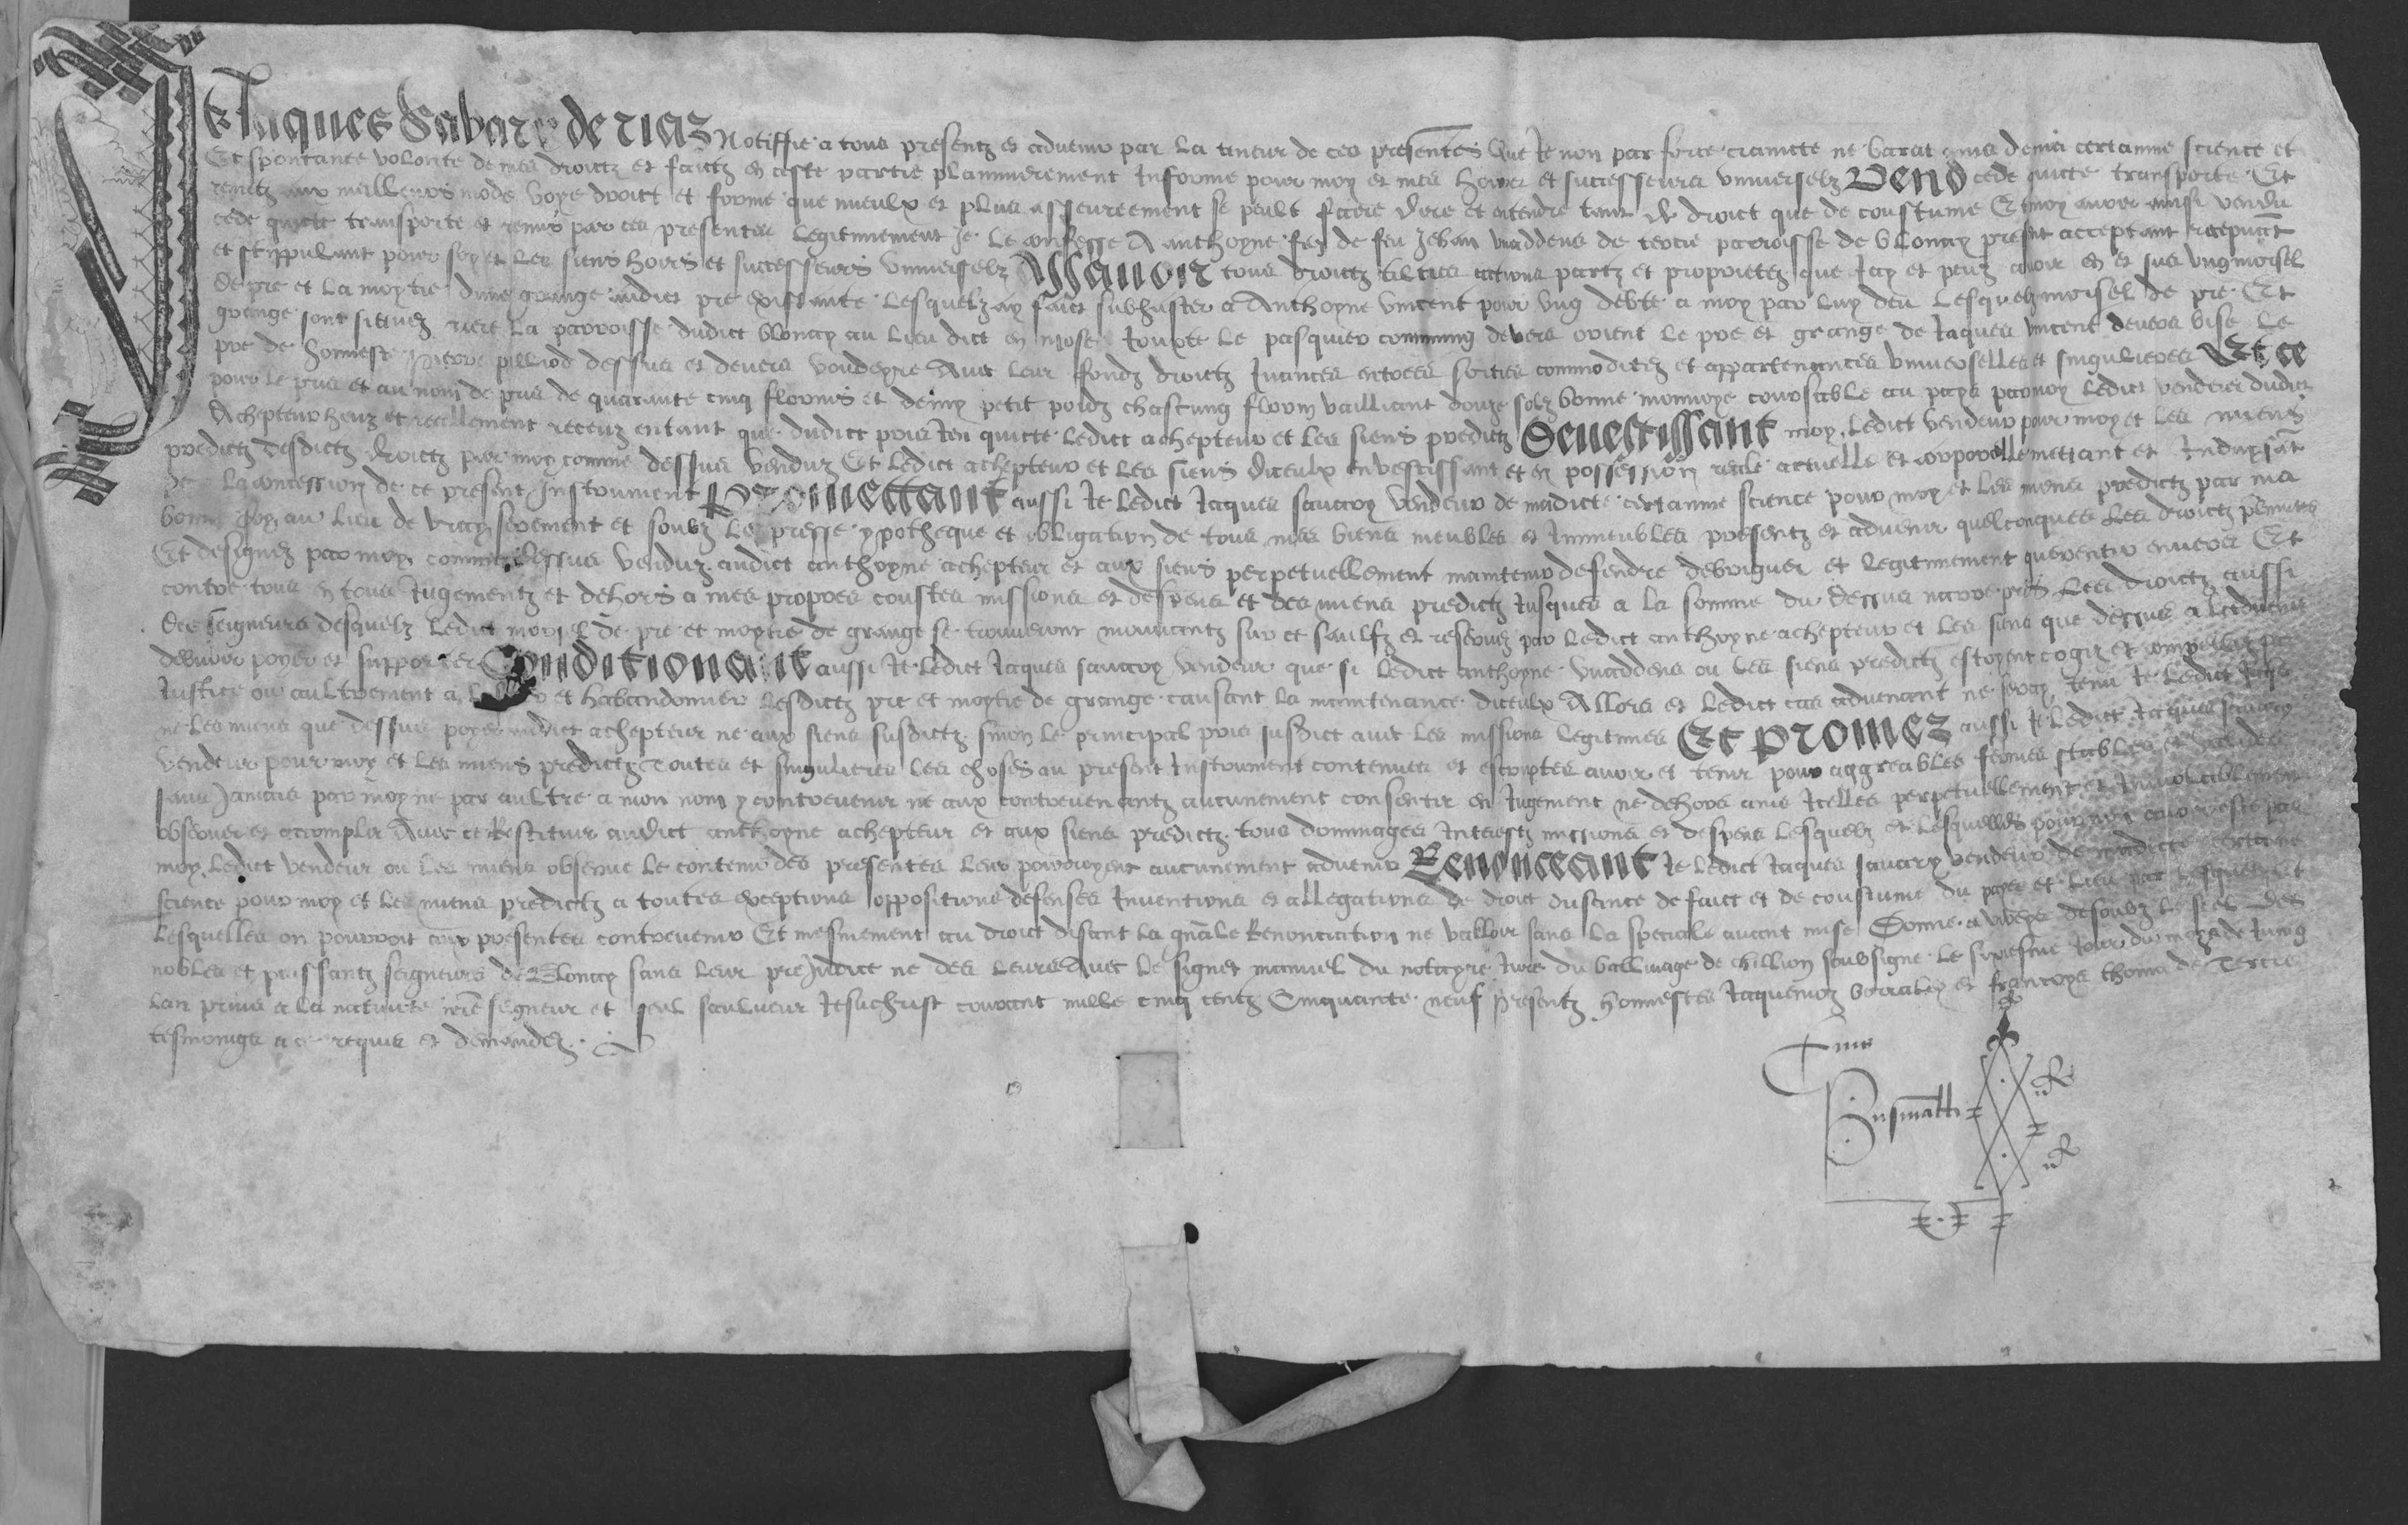 Je Jaques Savary de riaz Notiffie a tous presentz et advenir par la teneur de ces presentes Que Je non par force craincte ne barat ains de ma certainne science et
Et spontanee volonte de mes droictz et faictz en ceste partie plainnierement Informe pour moy et mes hoires et successeurs universelz Vend cede quicte transporte Et
remetz aux meilleurs mode voye droict et forme que mieulx et plus asseureement se peult faire dire et entendre tant de droict que de coustume Et moy avoir ainsi vendu
cede quicte transporte et remis par ces presentes legitimement Je le confesse A anthoyne filz de feu Jehan vuaddens de tercie parroisse de blonay present acceptant recepvant
et stippulant pour soy et les siens hoirs et successeurs universelz Assavoir tous droictz tiltres actions partz et proprietez que Jay et peuz avoir en et sus ung morsel
de pre et la moytie dune grange audict pre existante Lesquelz ay faict subhaster a Anthoyne vincent pour ung debte a moy par luy deu Lesquelz morsel de pre Et
grange sont situez riere la parroisse dudict blonay au lieu dict en Jouxte le pasquier commung devers orient le pre et grange de Jaques vincent devers bise le
pre de honneste pierre pilliod dessus et devers vaudeyre Avec leur fondz droictz Juances entrees sorties commoditez et appartenances universelles et singulieres Et ce
pour le pris et au nom de pris de quarante cinq florins et demy petit poidz chascung florin vaillant douze solz bonne monnoye coursable au pays par moy ledict vendeur dudict
Achepteur heuz et reallement receuz entant que dudict pris Jen quicte ledict achepteur et les siens predictz Devestissant moy ledict vendeur pour moy et les miens
predictz desdictz droictz par moy comme dessus venduz Et ledict achepteur et les siens diceulx Investissant et en possession reale actuelle et corporelle mettant et Induysant
par la concession de ce present Instrument Promettant aussi Je ledict Jaques savary vendeur de madicte certainne science pour moy et les miens predictz par ma
bonne foy au lieu de vray serement et soubz lexpresse ypotheque et obligation de tous mes biens meubles et Immeubles presentz et advenir quelconques Les droictz
Et designez par moy comme dessus venduz audict anthoyne achepteur et aux siens perpetuellement maintenir defendre desbriguer et legitimement guerentir envers Et
contre tous en tous Jugementz et dehors a mes propres coustes missions et despens et des miens predictz Jusques a la somme du dessus narre pris Les droictz aussi
des seigneurs desquelz ledict morsel de pre et moytie de grange se trouveront mouvantz sur ce saulfz et reservez par ledict anthoyne achepteur et les siens que dessus a
devoir payer et supporter Conditionant aussi Je ledict Jaques savary vendeur que si ledict anthoyne vuaddens ou les siens predictz estoyent cogiz et compellez par
Justice ou aultrement a et habandonner lesdictz pre et moytie de grange causant la maintenance diceulx Allors et ledict cas advenant ne seray tenu Je ledict Jaques
ne les miens que dessus payer audict achepteur ne aux siens susdictz sinon le principal pris susdict avec les missions legitimes Et promez aussi Je ledict Jaques savary
vendeur pour moy et les miens predictz Toutes et singulieres les choses au present Instrument contenues et escriptes avoir et tenir pour aggreables fermes stables et
sans Jamais par moy ne par aultre a mon nom y contrevenir ne aux contrevenantz aucunement consentir en Jugement ne dehors ains Icelles perpetuellement et Inviolablement
observer et accomplir Avec ce Restituer audict anthoyne achepteur et aux siens predictz tous dommages Interestz missions et despens Lesquelz et lesquelles
moy ledict vendeur ou les miens observe le contenu des presentes leur pourroyent aucunement advenir Renonceant Je ledict Jaques savary vendeur de madicte certaine
science pour moy et les miens predictz a toutes exceptions oppositions defenses Inventions et allegations de droict dusance de faict et de coustume du pays et lieu par lesquelz et
lesquelles on pourroit aux presentes contrevenir Et mesmement au droict disant la generale Renonciation ne valloir sans la speciale avant mise Donne a viveys desoubz le seel des
nobles et puissantz seigneurs de blonay sans leur preJudice ne des leurs Avec le signet manuel du notayre Jure du balliage de chillion soubsigne Le sixiesme Jour du moys de Juing
Lan prins a la nativite nostre seigneur et seul saulveur Jesuchrist courant mille cinq centz Cinquante neuf Presentz honnestes Jaquemoz et francoys thoma de Tercie
tesmoings a ce requis et demandez